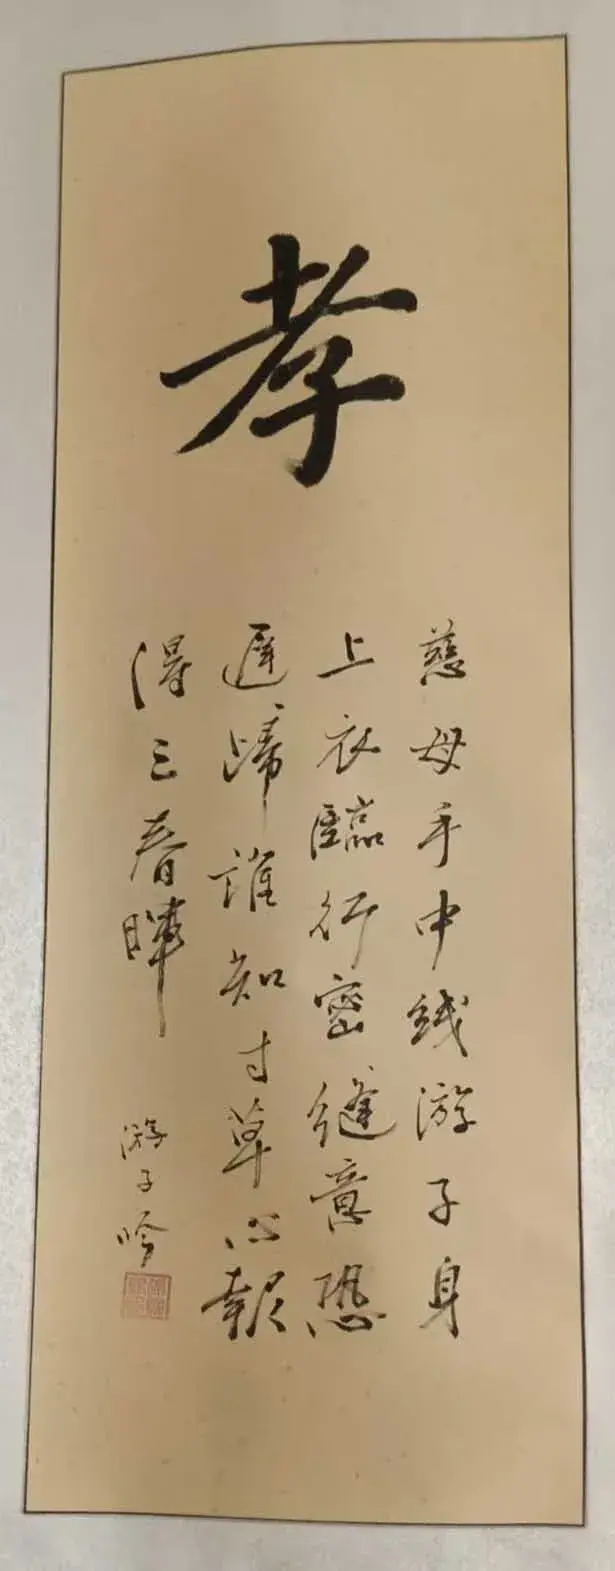 孝
慈母手中线游子身
上衣臨行密縫意恐
遲、歸誰知寸草心報
得三春暉
游子吟